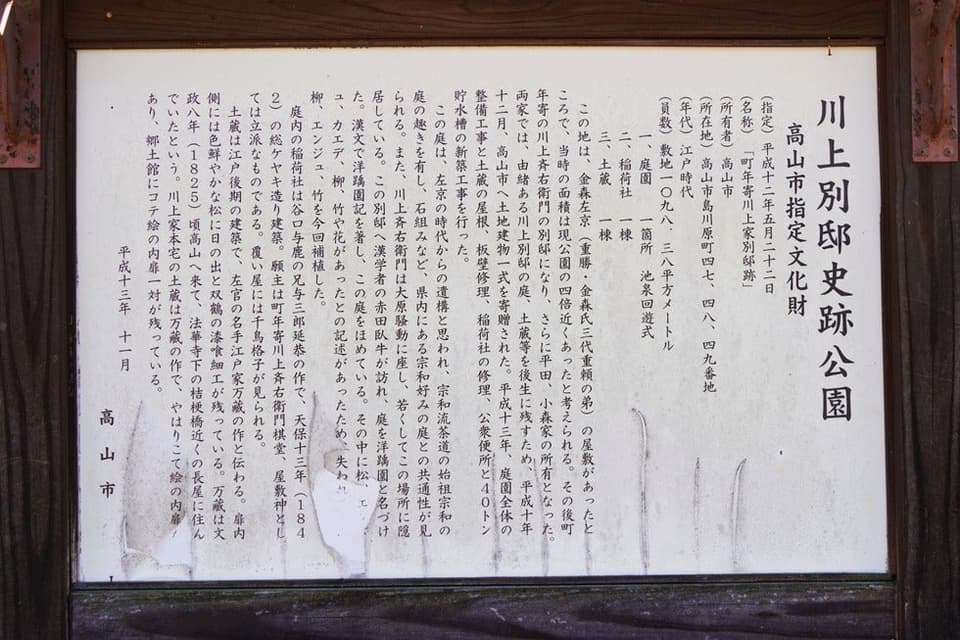 川上別邸史跡公園
高山市指定文化財
(指定) 平成十二年五月二十二日
(名称) 「町年寄川上家別邸跡」
(所有者) 高山市
(所在地) 高山市島川原町四七、四八、四九番地
(年代) 江戸時代
(員数) 敷地一〇九八.三八平方メートル
一、庭園 一箇所 池泉回遊式
二、稲荷社 一棟
三、土蔵 一棟
この地は、金森左京(重勝・金森氏三代重頼の弟)の屋敷があったと
ころで、当時の面積は現公園の四倍近くあったと考えられる。その後町
年寄の川上斉右衛門の別邸になり、さらに平田、小森家の所有となった。
両家では、由緒ある川上別邸の庭、土蔵等を後生に残すため、平成十年
十二月、高山市へ土地建物一式を寄贈された。平成十三年、庭園全体の
整備工事と土蔵の屋根、板壁修理、稲荷社の修理、公衆便所と40トン
貯水槽の新築工事を行った。
この庭は、左京の時代からの遺構と思われ、宗和流茶道の始祖宗和の
庭の趣きを有し、石組みなど、県内にある宗和好みの庭との共通性が見
られる。また、川上斉右衛門は大原騒動に座し、若くしてこの場所に隠
居している。この別邸へ漢学者の赤田臥牛が訪れ、庭を洋蹣園と名づけ
た。漢文で洋蹣園記を著し、この庭をほめている。その中に松、エ
ュ、カエデ、柳、竹や花があったとの記述があったため、失われ
柳、エンジュ、竹を今回補植した。
庭内の稲荷社は谷口与鹿の兄与三郎延恭の作で、天保十三年(184
2)の総ケヤキ造り建築。願主は町年寄川上斉右衛門棋堂、屋敷神とし
ては立派なものである。覆い屋には千鳥格子が見られる。
土蔵は江戸後期の建築で、左官の名手江戸家万蔵の作と伝わる。扉内
側には色鮮やかな松に日の出と双鶴の漆喰細工が残っている。万蔵は文
政八年(1825)頃高山へ来て、法華寺下の桔梗橋近くの長屋に住ん
でいたという。川上家本宅の土蔵は万蔵の作で、やはりこて絵の内扉
あり、郷土館にコテ絵の内扉一対が残っている。
平成十三年 十一月
高山市